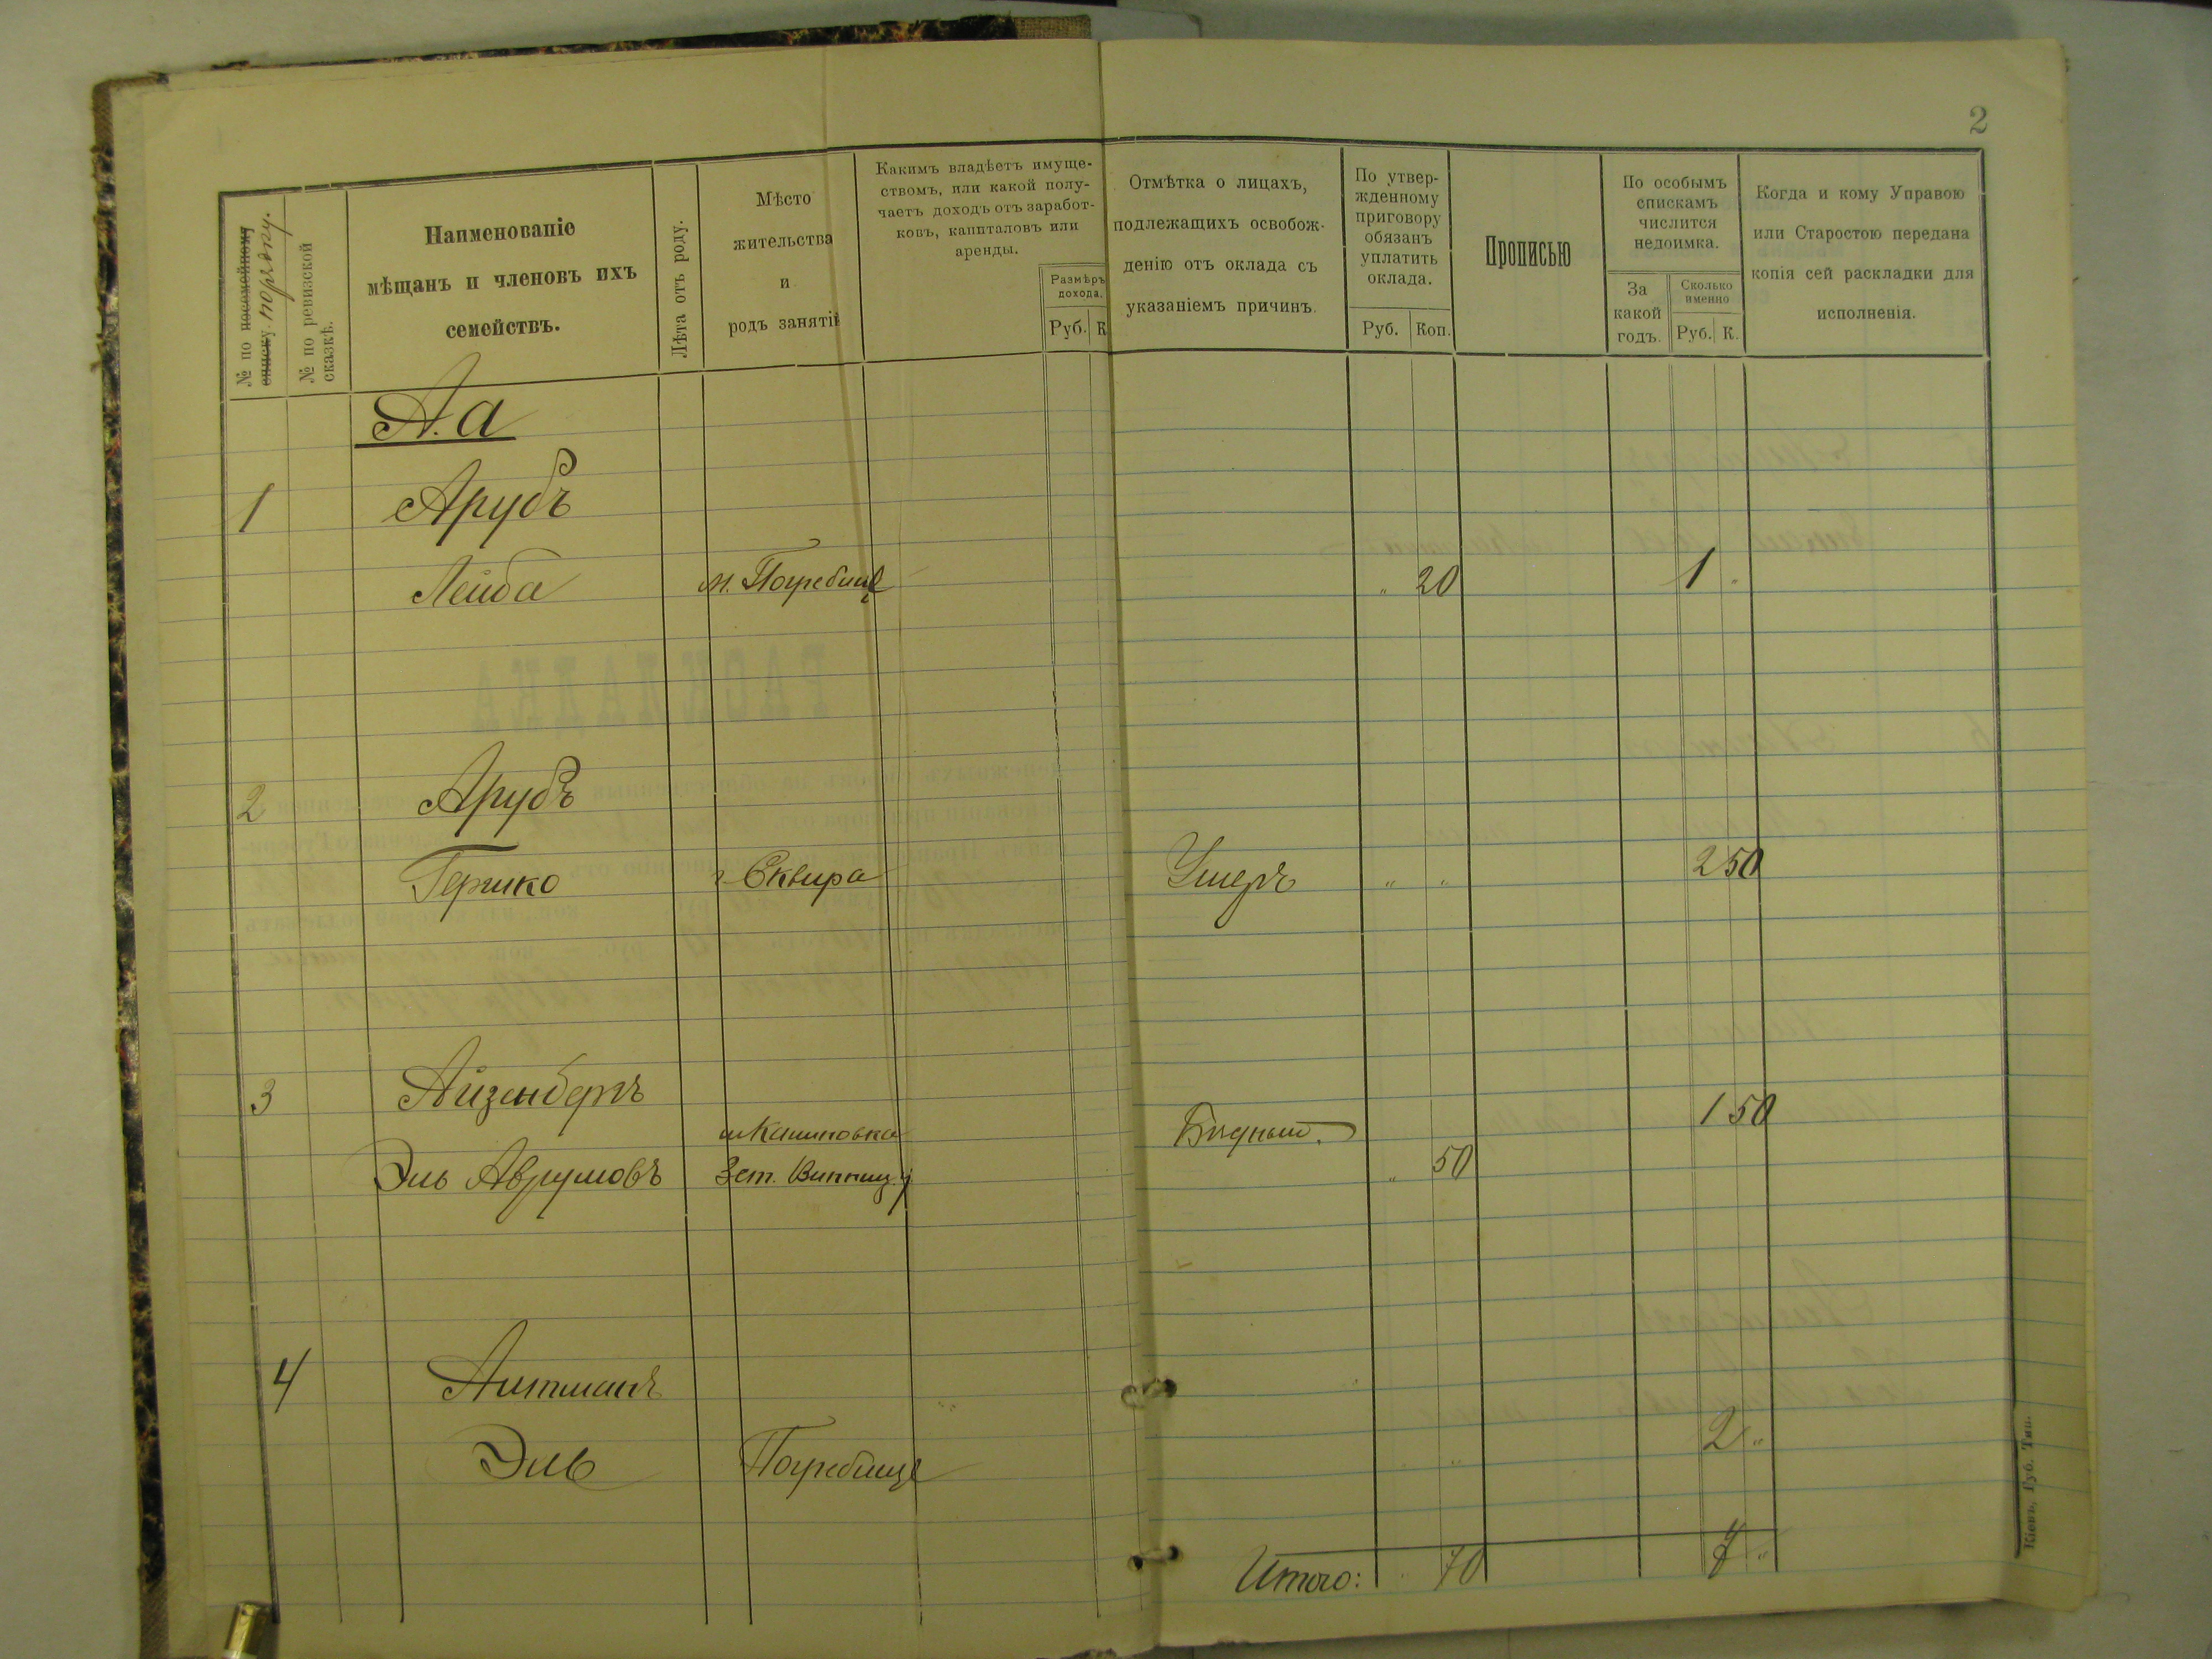 2
№ по посемейному списку. по рядку.
№ по ревизской сказкѣ.
Наименованіе
мѣщанъ и членовъ ихъ
семействъ.
Лѣта отъ роду.
Мѣсто
жительства
и
родъ занятій
Какимъ владѣетъ имуще-
ствомъ, или какой полу-
чаетъ доходъ отъ заработ-
ковъ, капиталовъ или
аренды.
Размѣръ
дохода.
Руб. К
Отмѣтка о лицахъ,
подлежащихъ освобож-
денію отъ оклада съ
указаніемъ причинъ.
По утвер-
жденному
приговору
обязанъ
уплатить
оклада.
Руб. Коп.
Прописью
По особымъ
спискамъ
числится
недоимка.
За
какой
годъ.
Сколько
именно
Руб. К.
Когда и кому Управою
или Старостою передана
копія сей раскладки для
исполненія.
А. а
1 Арубъ
Лейба м. Погребище „ 20 1 „
2 Арубъ
Гершко г. Сквира Умеръ „ „ 2 50
3 Айзенбергъ
м Калиновка Бѣдный. 1 50
Эль Аврумовъ Зст. Винниц. у „ 50
4 Алтманъ
Эль Погребище „ 2 „
Итого: „ 70 7 „
Кіевъ, Губ. Тип.